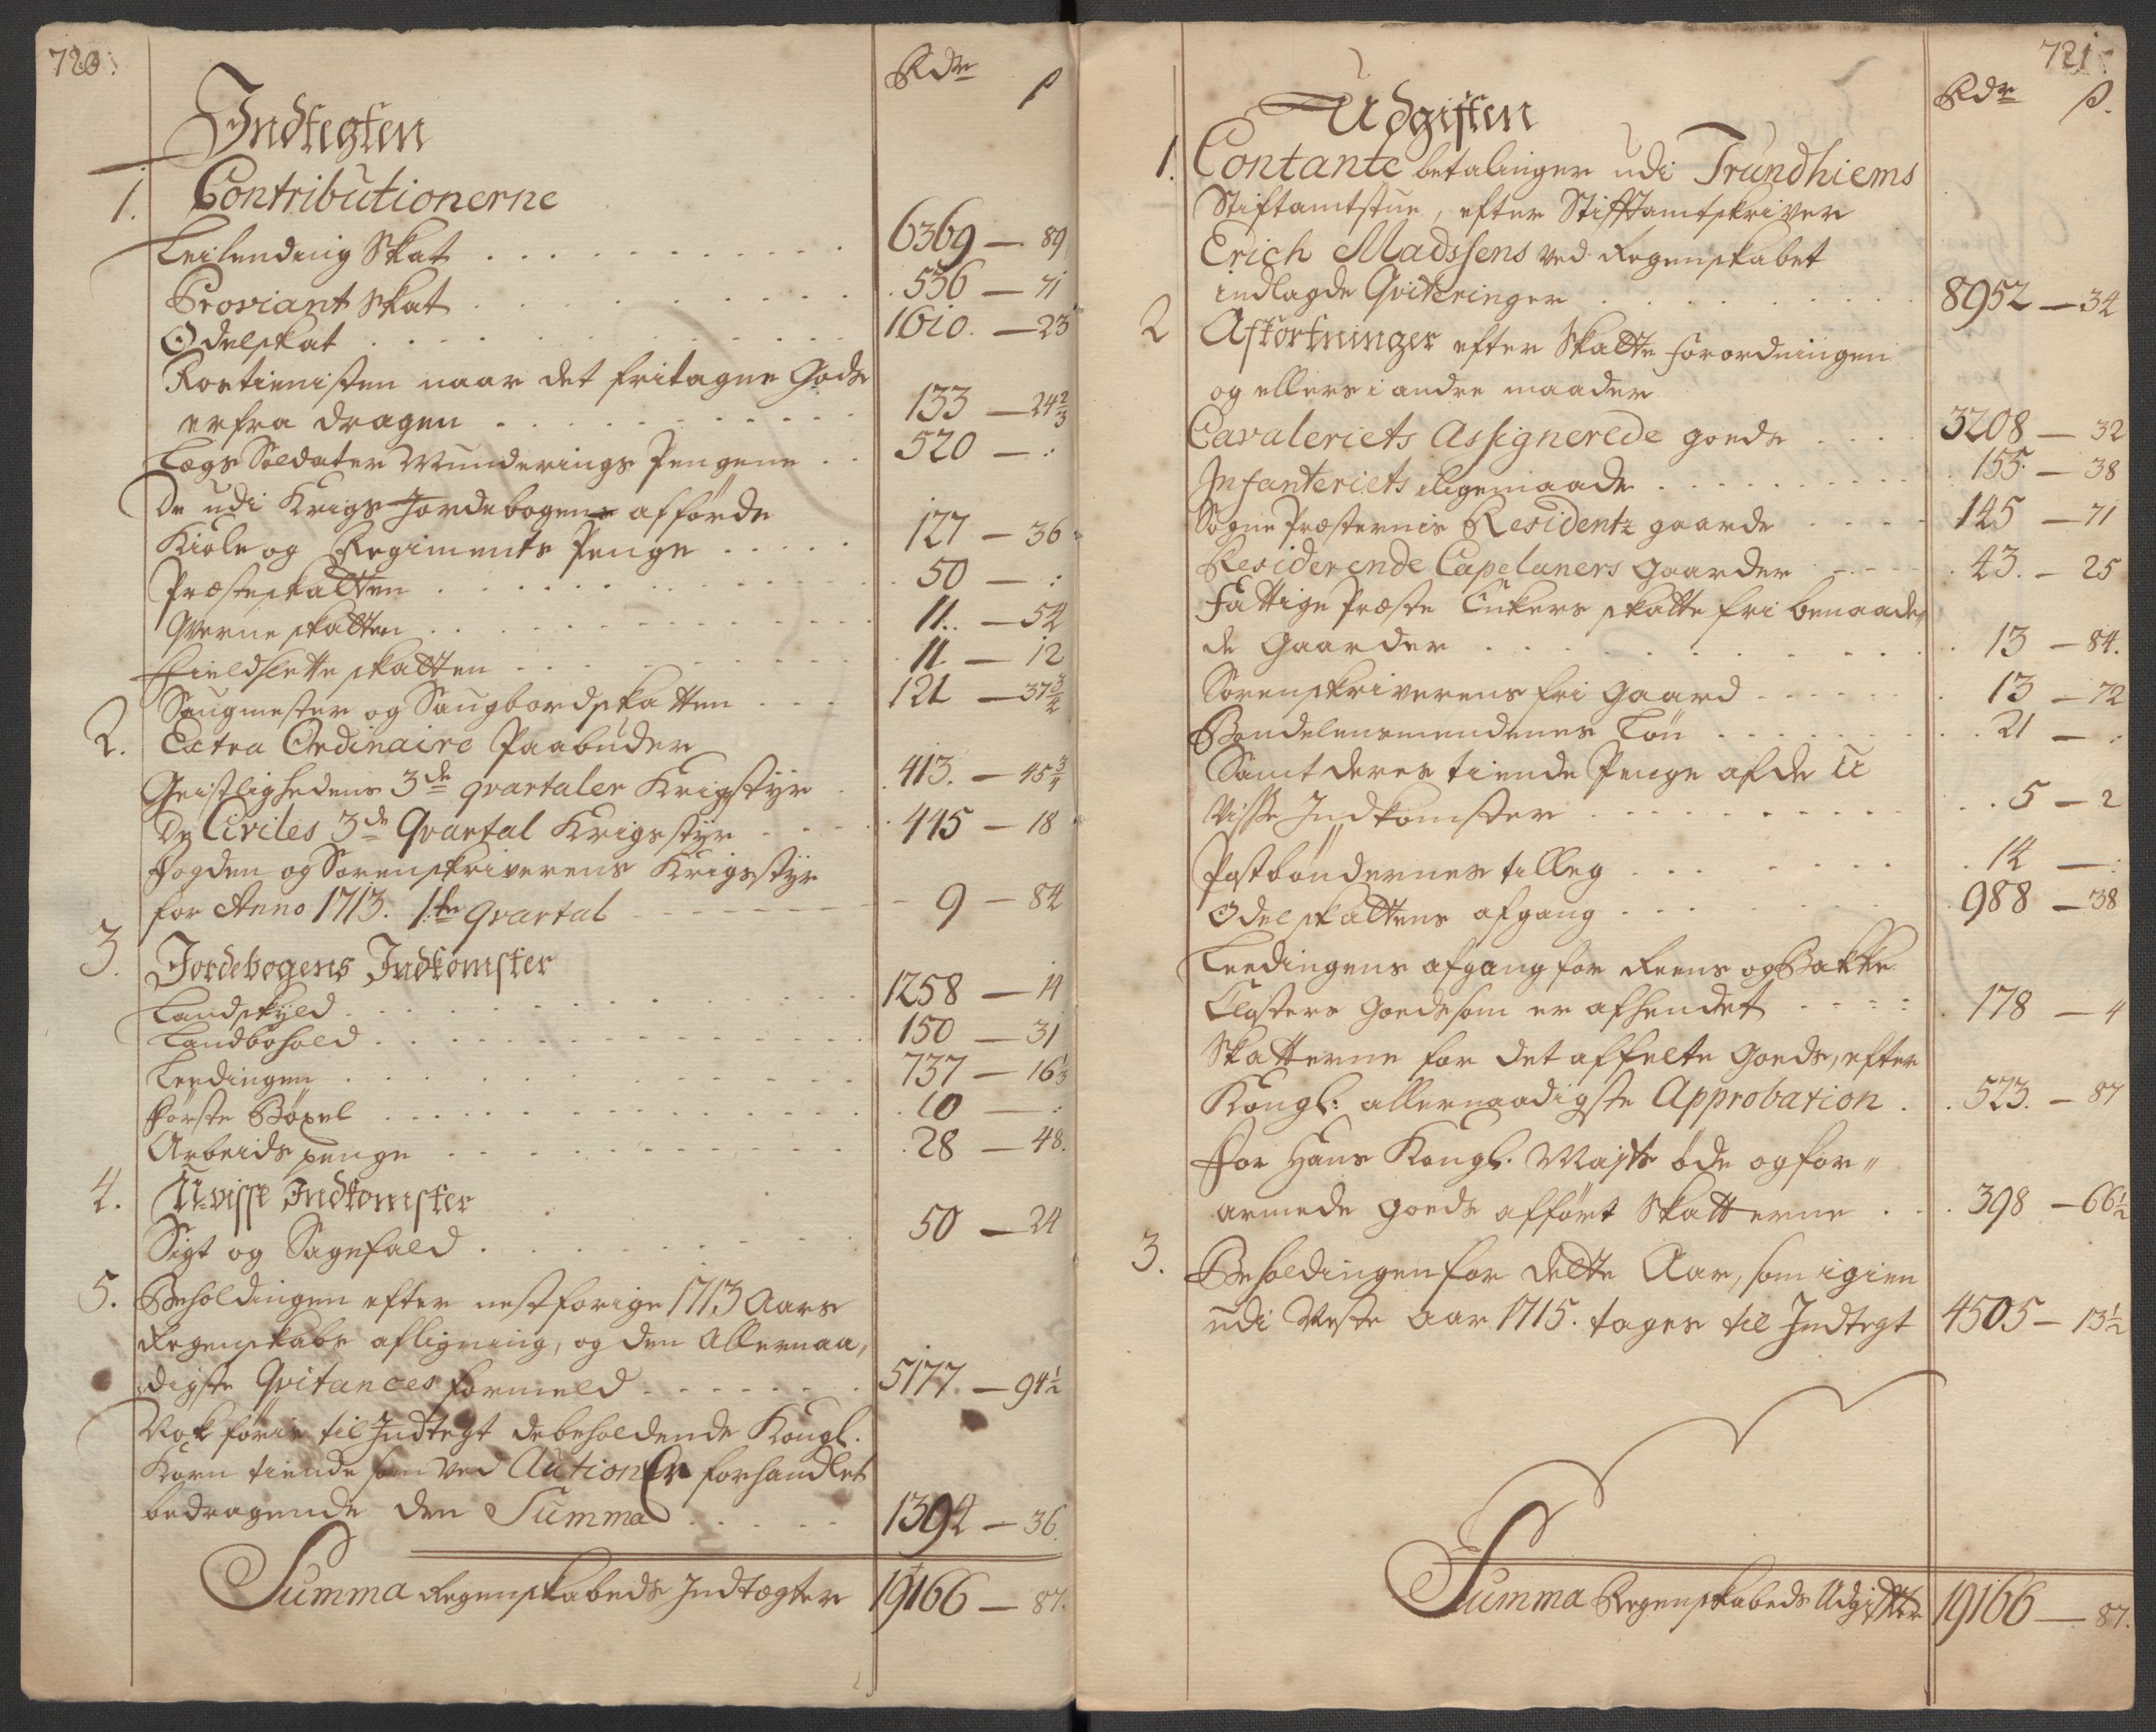 720.
Rdr ß
Indtegten
1. Contributionerne
Leilending Skat 6369 — 89
Proviant Skat 556 — 71
Odelskat 1610. — 23
Rostienisten naar det fritagne Gods
er fra dragen 133 — 24 2/3
Legs Soldater Munderings Pengene 520 — :
De udi Krigs Jordebogen afförde
Kiole og Regiments Penge 127 — 36
Præsteskatten 50 — :
Qverne skatten 11 — 54
Fieldslette skatten 11 — 12
Saugmester og Saugbordskatten 121 — 37 3/4
2. Extra Ordinaire Paabuder
Geistlighedens 3de qvartaler Krigstyr 413. — 45 3/4
De Civiles 3de Qvartal Krigsstyr 445 — 18
Fogden og Sorenskriverens Krigsstyr
for Anno 1713. 1ste qvartal 9 — 84
3. Jordebogens Indkomster
Landskyld 1258 — 14
Landbohold 150 — 31
Leedingen 737 — 16 1/3
Förste Böxel 10 — :
Arbeids penge 28 — 48.
4. Uvisse Indkomster
Sigt og Sagefald 50 — 24
5. Beholdingen efter nestforige 1713 Aars
Regenskabs afligning, og den Allernaa,
digste Qvitances formeld 5177. — 94 1/2
Nok föris til Indtegt de beholdende Kongl.
Korn tiende som ved Auctioner forhandlet
bedragende den Summa 1394 — 36.
Summa Regenskabeds Indtegter 19166 — 87.
721.
Rdr ß.
Udgiften
1. Contante betalinger udi Trundhiems
Stiftamtstue, efter Stifftamtskriver
Erich Madssens ved Regenskabet
indlagde Qviteringer 8952 — 34
2 Afkortninger efter Skatte forordningen
og ellers i andre maader
Cavaleriets Assignerede goeds 3208 — 32
Infanteriets iligemaade 155. — 38
Sogne Præsternis Residentz gaarde 145 — 71
Residerende Capelaners gaarder 43. — 25
Fattige Præste Enkers skatte fri benaade,,
de gaarder 13 — 84.
Sorenskriverens fri gaard 13 — 72
Bondelensmendenes Lön 21 — :
Samt deres tiende Penge af de U
visse Indkomster 5 — 2
Postböndernes tilleg 14 — :
Odelskattens afgang 988 — 38
Leedingens afgang for Reens og Bakke
Closters goeds som er afhendet 178 — 4
Skatterne for det affelte goeds, efter
Kongl: allernaadigste Approbation 523. — 87
For Hans Kongl. Mayts öde og for,,
armede goeds afført Skatterne 398 — 66 1/2
3. Beholdingen for dette Aar, som igien
udi Neste Aar 1715. tages til Indtegt 4505 — 13 1/2
Summa Regenskabeds Udgifter 19166 — 87.